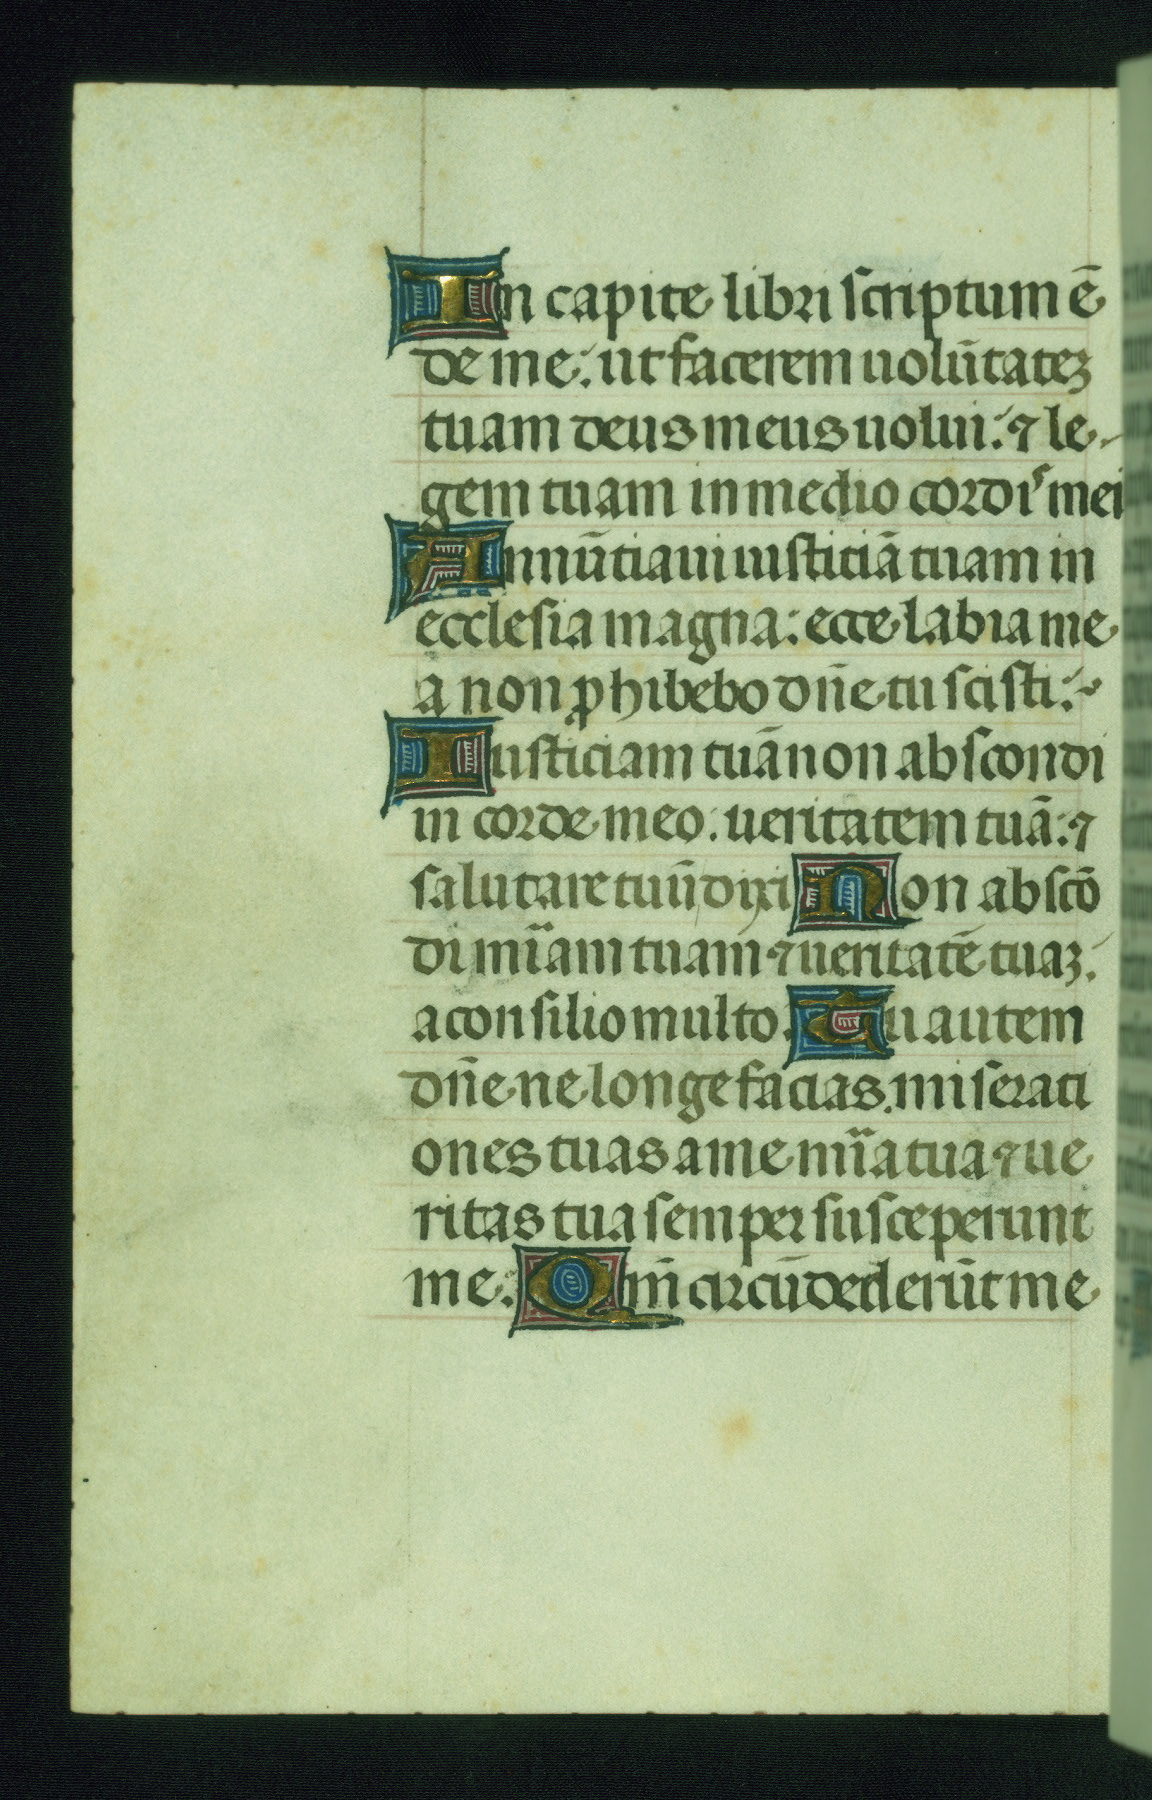 In capite libri scriptum ē
de me: ut facerem uolūtateʒ
tuam deus meus uolui: ⁊ le-
gem tuam in medio cordis mei
Annūtiaui iusticiā tuam in
ecclesia magna: ecce labia me
a non ꝓhibebo dn̄e tu scisti:~
Iusticiam tuā non abscondi
in corde meo: ueritatem tuā: ⁊
salutare tuū dixi Non abscō
di mīam tuam ⁊ ueritatē tuaʒ.
a consilio multo. Tu autem
dn̄e ne longe facias. miserati
ones tuas a me mīa tua ⁊ ue
ritas tua semper susceperunt
me. Qm̄ circūdederūt me